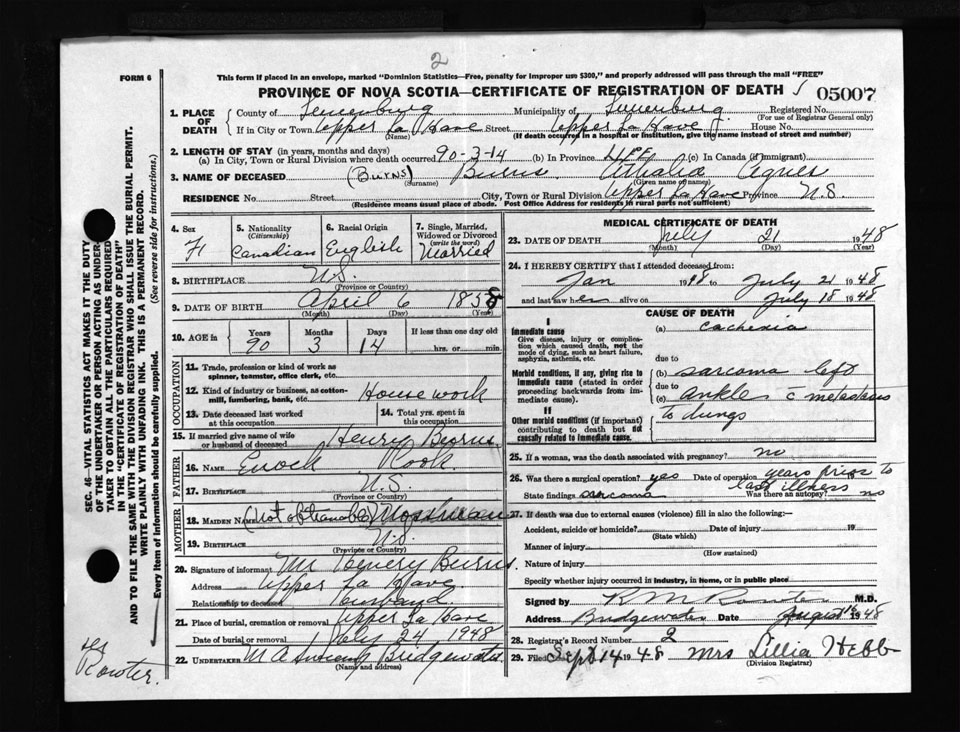 2
FORM 6
This form if placed in an envelope, marked "Dominion Statistics—Free, penalty for improper use $300," and properly addressed will pass through the mail "FREE"
PROVINCE OF NOVA SCOTIA—CERTIFICATE OF REGISTRATION OF DEATH 05007
1. PLACE OF DEATH
County of Lunenburg Municipality of Lunenburg Registered No.
(For use of Registrar General only)
If in City or Town Upper La Have Street Upper La Have House No.
(Name) (If death occurred in a hospital or institution, give the name instead of street and number)
2. LENGTH OF STAY (in years, months and days)
(a) In City, Town or Rural Division where death occurred 90-3-14 (b) In Province Life (c) In Canada (if immigrant)
3. NAME OF DECEASED (Burns) Burns Athalia Agnes
Surname (Given name or names)
RESIDENCE No. Street City, Town or Rural Division Upper La Have Province N.S.
(Residence means usual place of abode. Post Office Address for residents in rural parts not sufficient)
4. Sex F
5. Nationality (Citizenship) Canadian
6. Racial Origin English
7. Single, Married, Widowed or Divorced (write the word) Married
8. BIRTHPLACE N.S.
(Province or Country)
9. DATE OF BIRTH April 6 1858
(Month) (Day) (Year)
10. AGE in Years Months Days If less than one day old
90 3 14 hrs. or min.
OCCUPATION
11. Trade, profession or kind of work as spinner, teamster, office clerk, etc.
12. Kind of industry or business, as cotton-mill, lumbering, bank, etc. Housework
13. Date deceased last worked at this occupation
14. Total yrs. spent in this occupation
15. If married give name of wife or husband of deceased Henry Burns
FATHER
16. NAME Enoch
17. BIRTHPLACE N.S.
(Province or Country)
MOTHER
18. MAIDEN NAME (Not obtainable)
19. BIRTHPLACE N.S.
(Province or Country)
20. Signature of informant Mr Henery Burns
Address Upper La Have
Relationship to deceased husband
21. Place of burial, cremation or removal Upper La Have
Date of burial or removal July 24 1948
22. UNDERTAKER M A Bridgewater
(Name and address)
MEDICAL CERTIFICATE OF DEATH
23. DATE OF DEATH July 21 1948
(Month) (Day) (Year)
24. I HEREBY CERTIFY that I attended deceased from:
Jan 1948 to July 21 1948
and last saw her alive on July 18 1948
CAUSE OF DEATH
I
Immediate cause
Give disease, injury or complication which caused death, not the mode of dying, such as heart failure, asphyxia, asthenia, etc.
(a) cachexia
due to
Morbid conditions, if any, giving rise to immediate cause (stated in order proceeding backwards from immediate cause).
(b) sarcoma left
due to
(c) ankle c metastasis
to lungs
II
Other morbid conditions (if important) contributing to death but not causally related to immediate cause.
25. If a woman, was the death associated with pregnancy? no
26. Was there a surgical operation? yes Date of operation years prior to last illness
State findings sarcoma Was there an autopsy? no
27. If death was due to external causes (violence) fill in also the following:—
Accident, suicide or homicide? Date of injury 19
(State which)
Manner of injury
(How sustained)
Nature of injury
Specify whether injury occurred in Industry, in Home, or in public place
Signed by R M Rowter M.D.
Address Bridgewater Date August 16 1948
28. Registrar's Record Number 2
29. Filed Sept 14 1948 Mrs Lillia Hebb
(Division Registrar)
SEC. 46—VITAL STATISTICS ACT MAKES IT THE DUTY
OF THE UNDERTAKER OR PERSON ACTING AS UNDER-
TAKER TO OBTAIN ALL THE PARTICULARS REQUIRED
IN THE "CERTIFICATE OF REGISTRATION OF DEATH"
AND TO FILE THE SAME WITH THE DIVISION REGISTRAR WHO SHALL ISSUE THE BURIAL PERMIT.
WRITE PLAINLY WITH UNFADING INK. THIS IS A PERMANENT RECORD.
Every item of information should be carefully supplied. (See reverse side for instructions.)
Rowter.